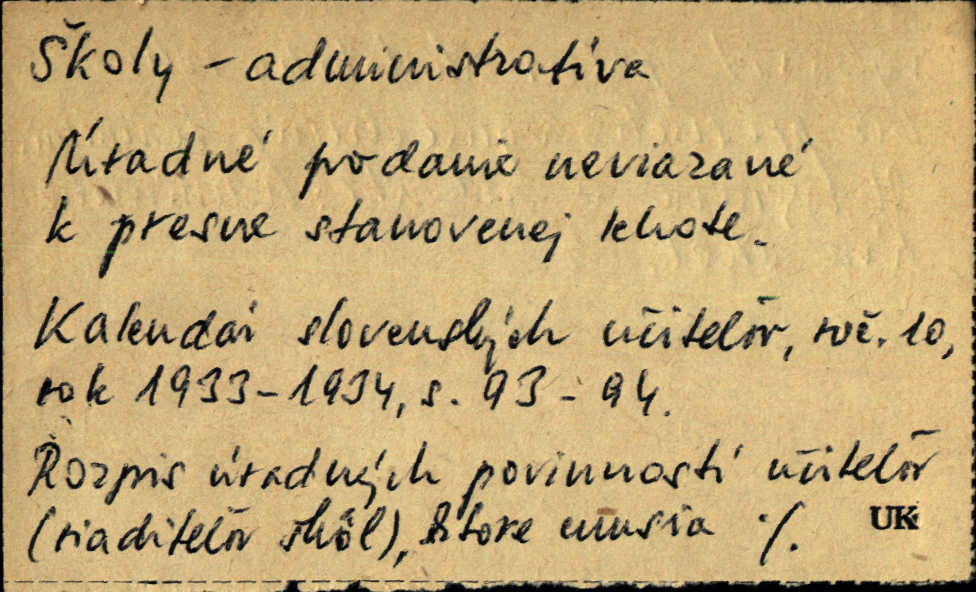 Školy - administratíva
Úradné podanie neviazané
k presne stanovenej lehote.
Kalendár slovenských učitelův, roč. 10,
rok 1933-1934, s. 93-94.
Rozpis úradných povinností učitelův
(riaditelův škôl), ktoré musia ·/.
UK